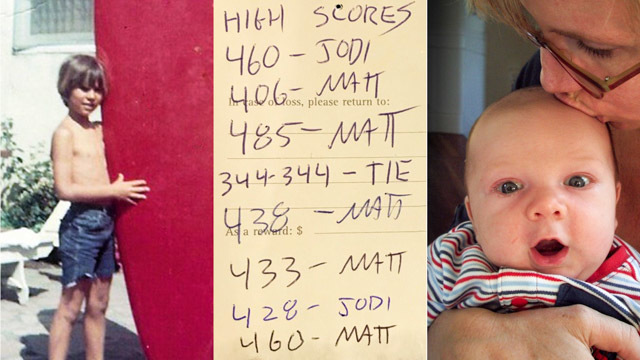 HIGH SCORES
460 - JODI
406 - MATT
In case of loss, please return to:
485 - MATT
344-344 - TIE
438 - MATT
As a reward: $
433 - MATT
428 - JODI
460 - MATT